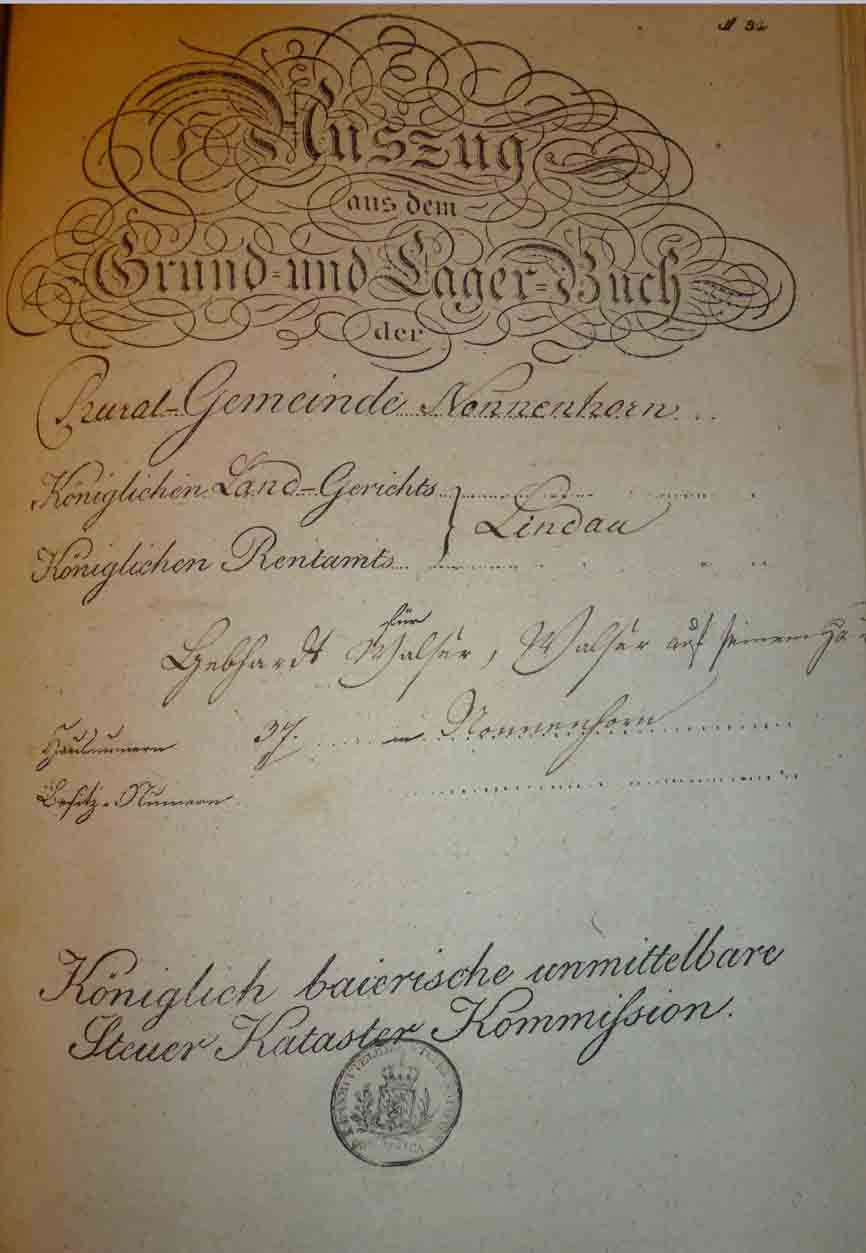 Auszug
aus dem
Grund- und Lager-Buch
der
Rural-Gemeinde Nonnenhorn
Königlichen Land-Gerichts
Lindau
Königlichen Rentamts
für
Gebhardt Walser, Walser auf seinem
Hausnumern 37. in Nonnenhorn
Besitz-Numern
Königlich baierische unmittelbare
Steuer Kataster Kommission.